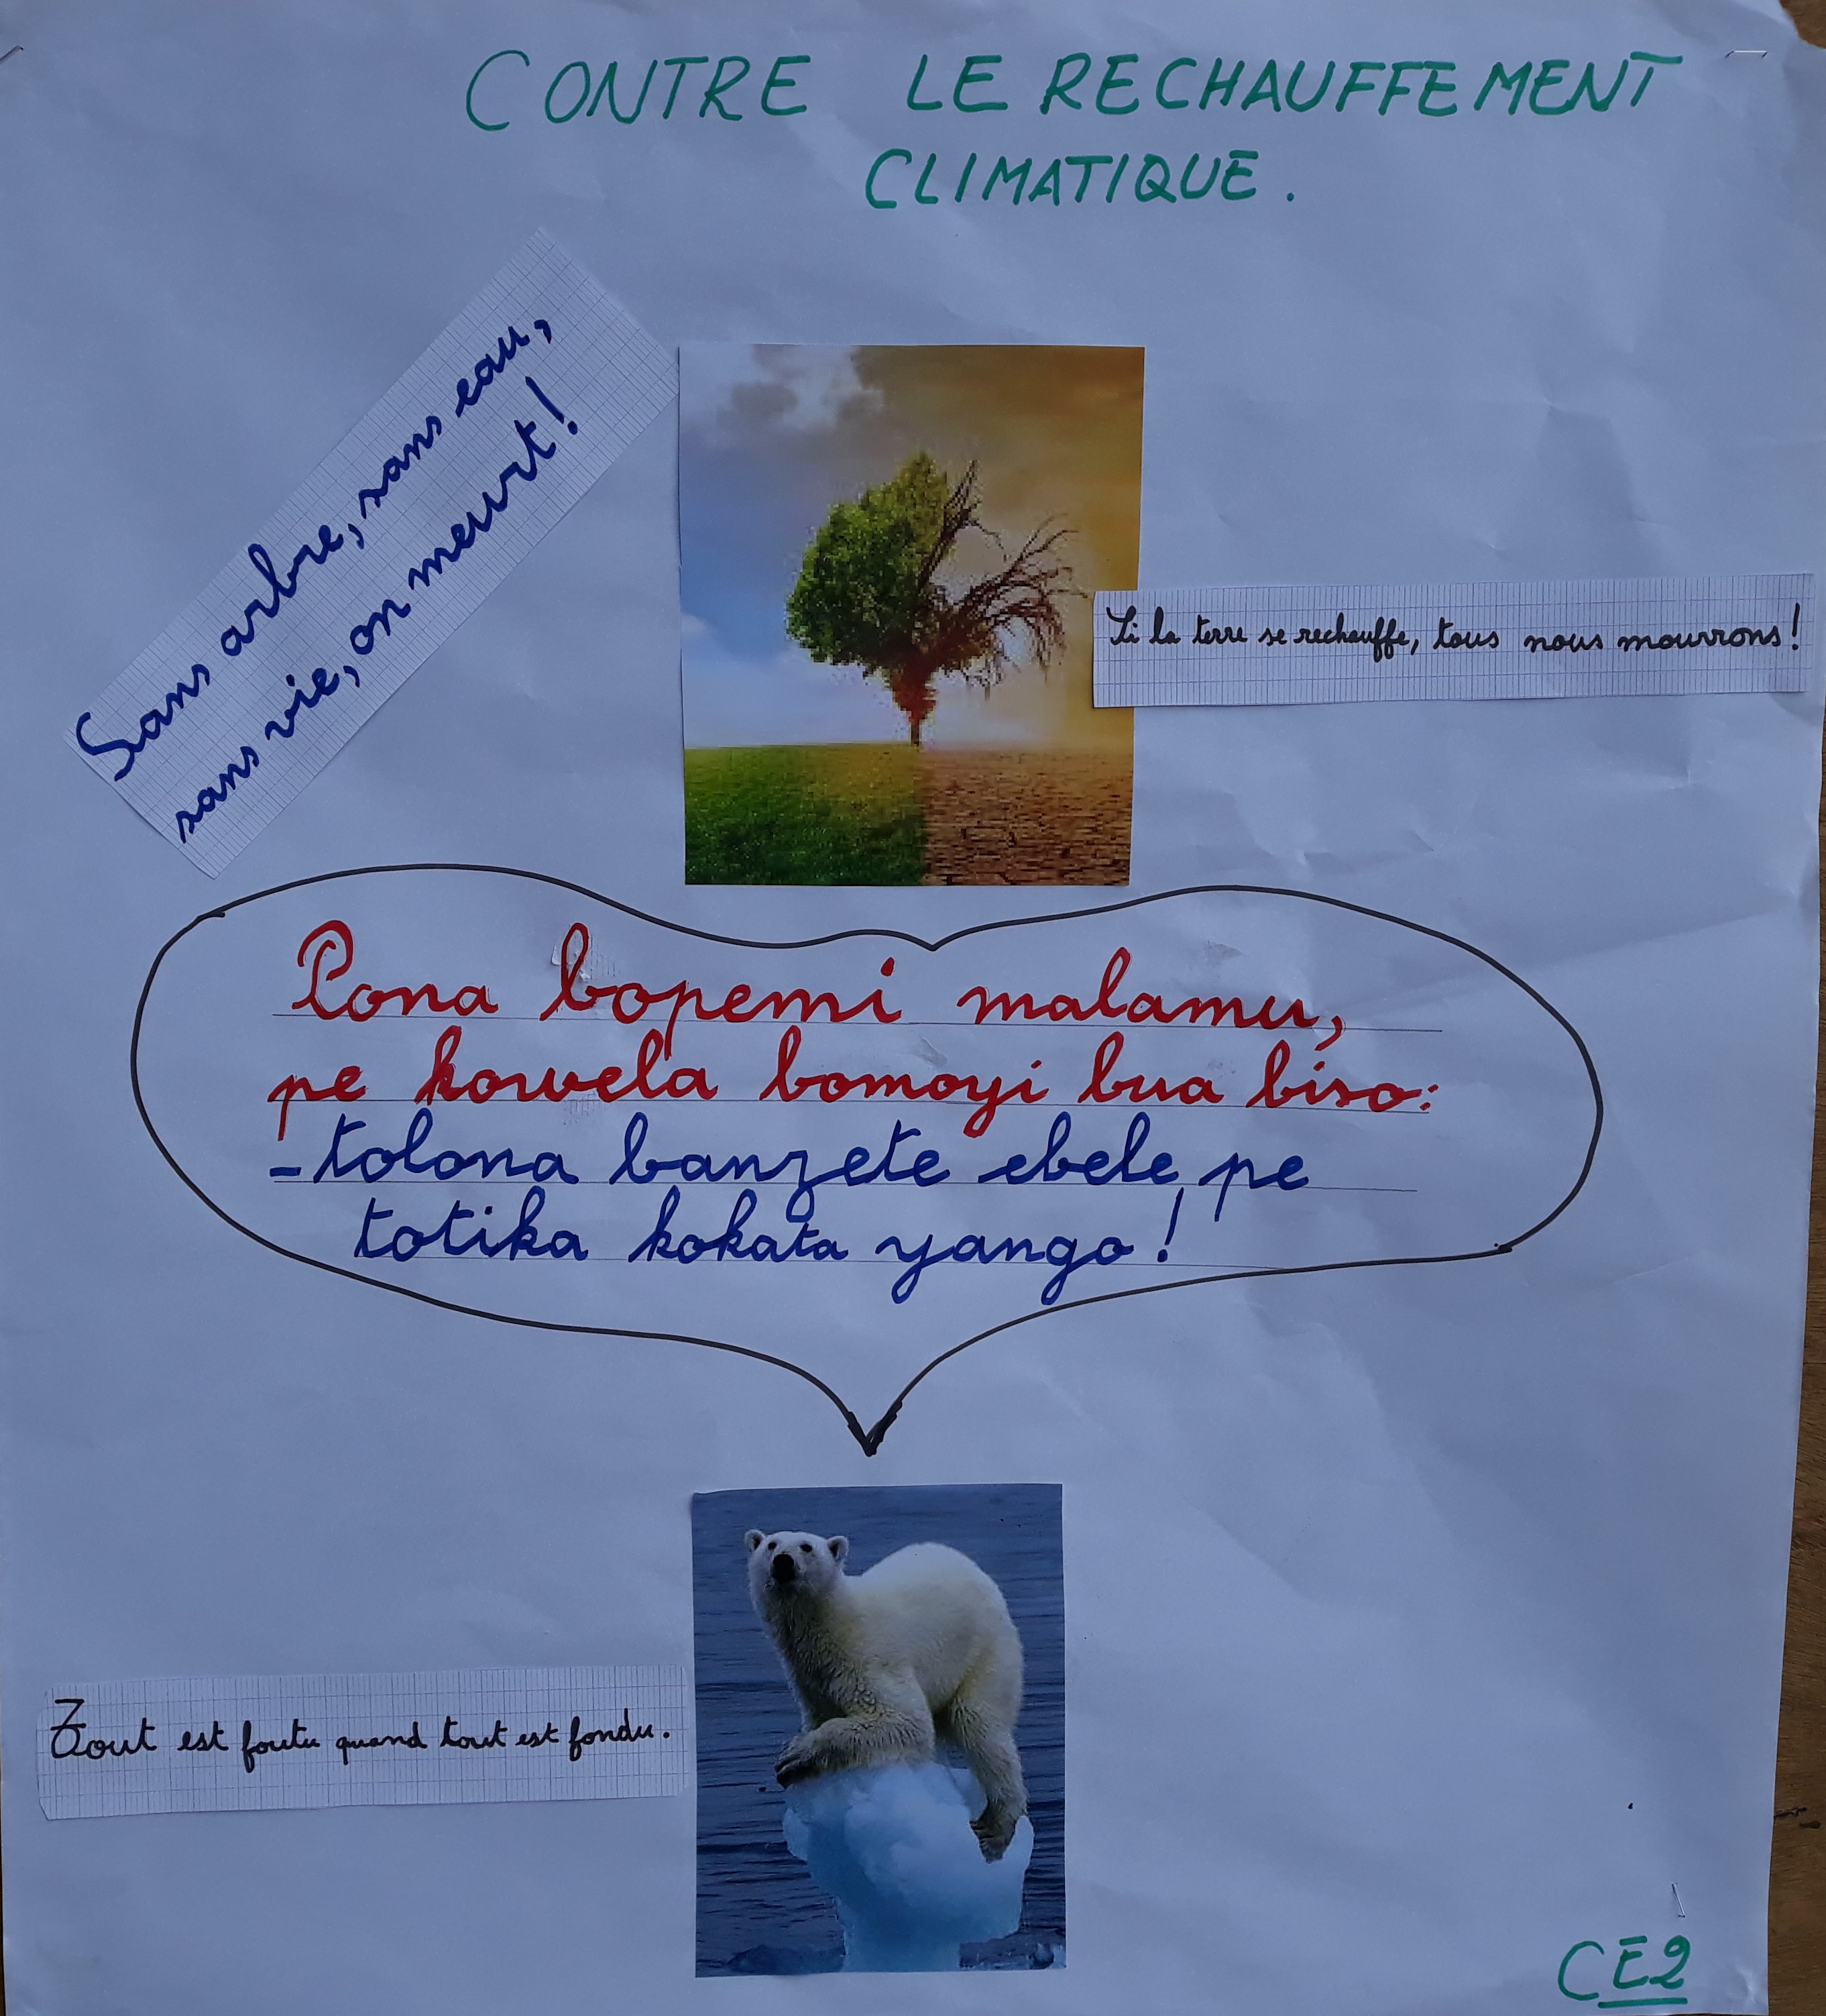 CONTRE LE RECHAUFFEMENT
CLIMATIQUE.
Sans arbre, sans eau,
sans vie, on meurt!
Si la terre se rechauffe, tous nous mourrons!
Pona bopemi malamu,
pe kowela bomoyi bua biso:
-tolona banzete ebele pe
totika kokata yango!
Tout est foutu quand tout est fondu.
CE2